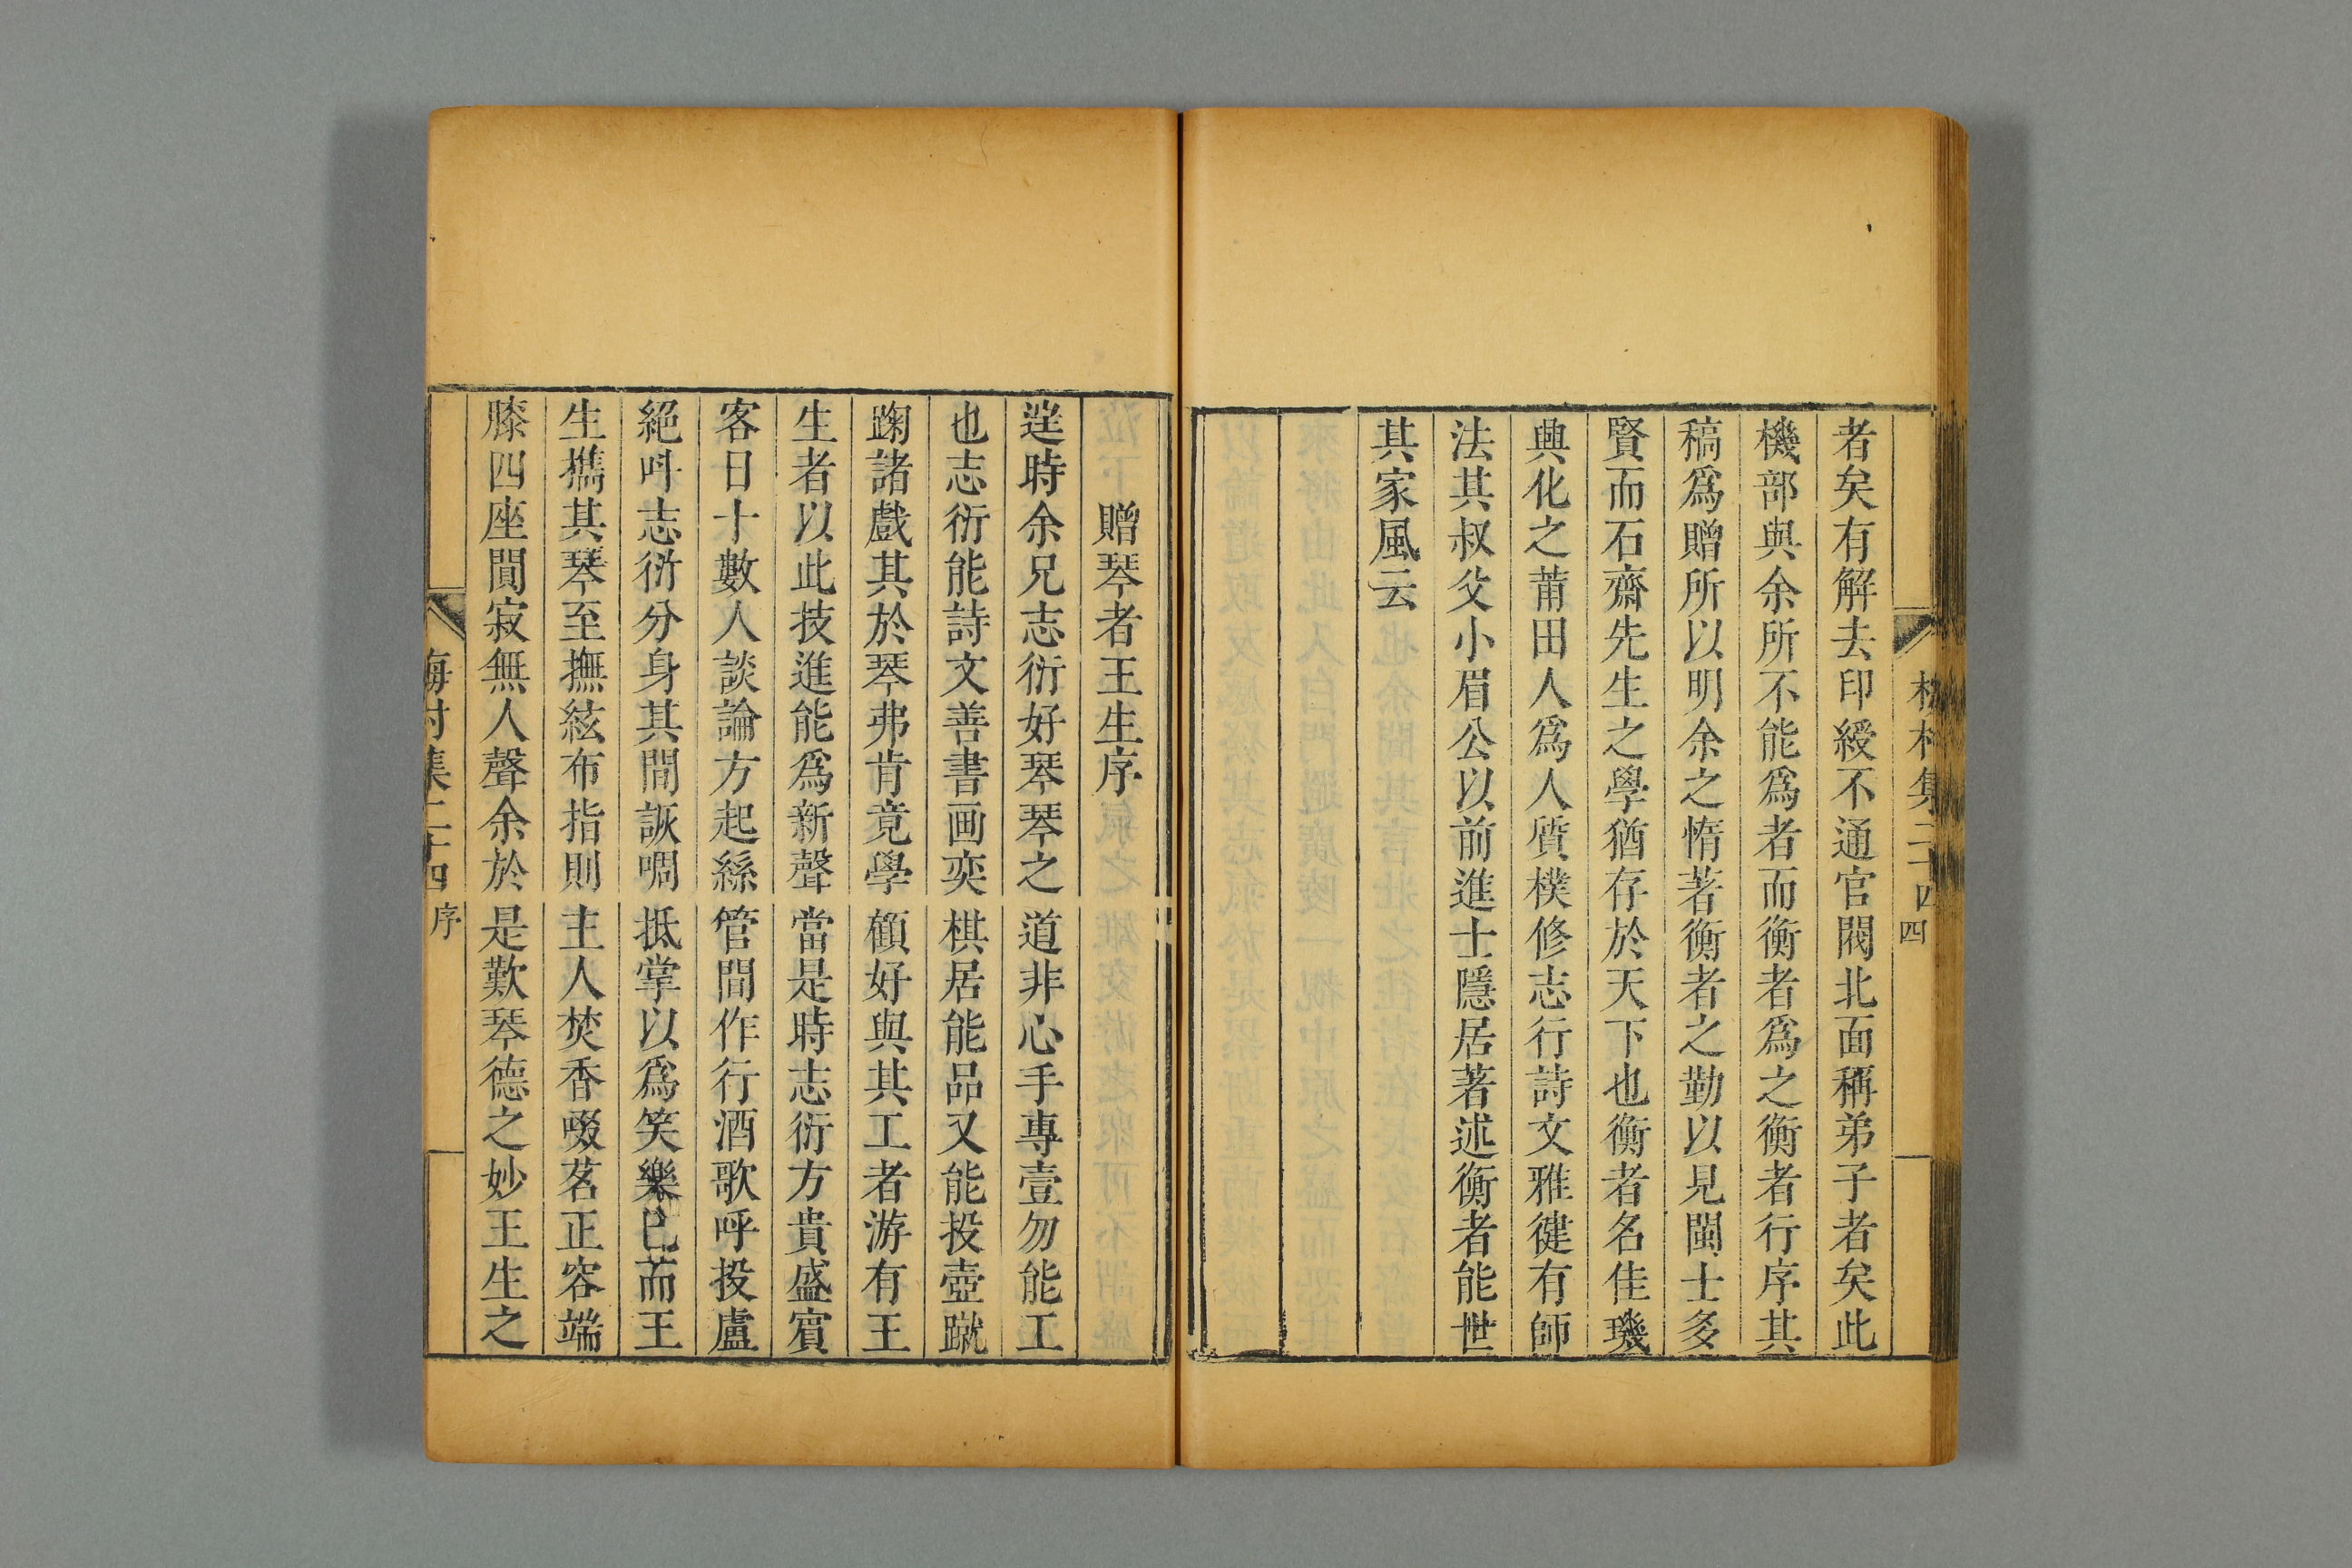 者矣有解去印綬不通官閥北面稱弟子者矣此
機部與余所不能爲者而衡者爲之衡者行序其
稿爲贈所以明余之惰著衡者之勤以見閩士多
賢而石齋先生之學猶存於天下也衡者名佳璣
興化之莆田人爲人質樸修志行詩文雅健有師
法其叔父小眉公以前進士隱居著述衡者能世
其家風云
贈琴者王生序
逆時余兄志衍好琴琴之道非心手專壹勿能工
也志衍能詩文善書画奕棋居能品又能投壺蹴
踘諸戲其於琴弗肯竟學顧好與其工者游有王
生者以此技進能爲新聲當是時志衍方貴盛賓
客日十數人談論方起絲管間作行酒歌呼投盧
絕呌志衍分身其間詼啁抵掌以爲笑樂已而王
生攜其琴至撫絃布指則主人焚香啜茗正容端
膝四座閴寂無人聲余於是歎琴德之妙王生之
梅村集二十四 序